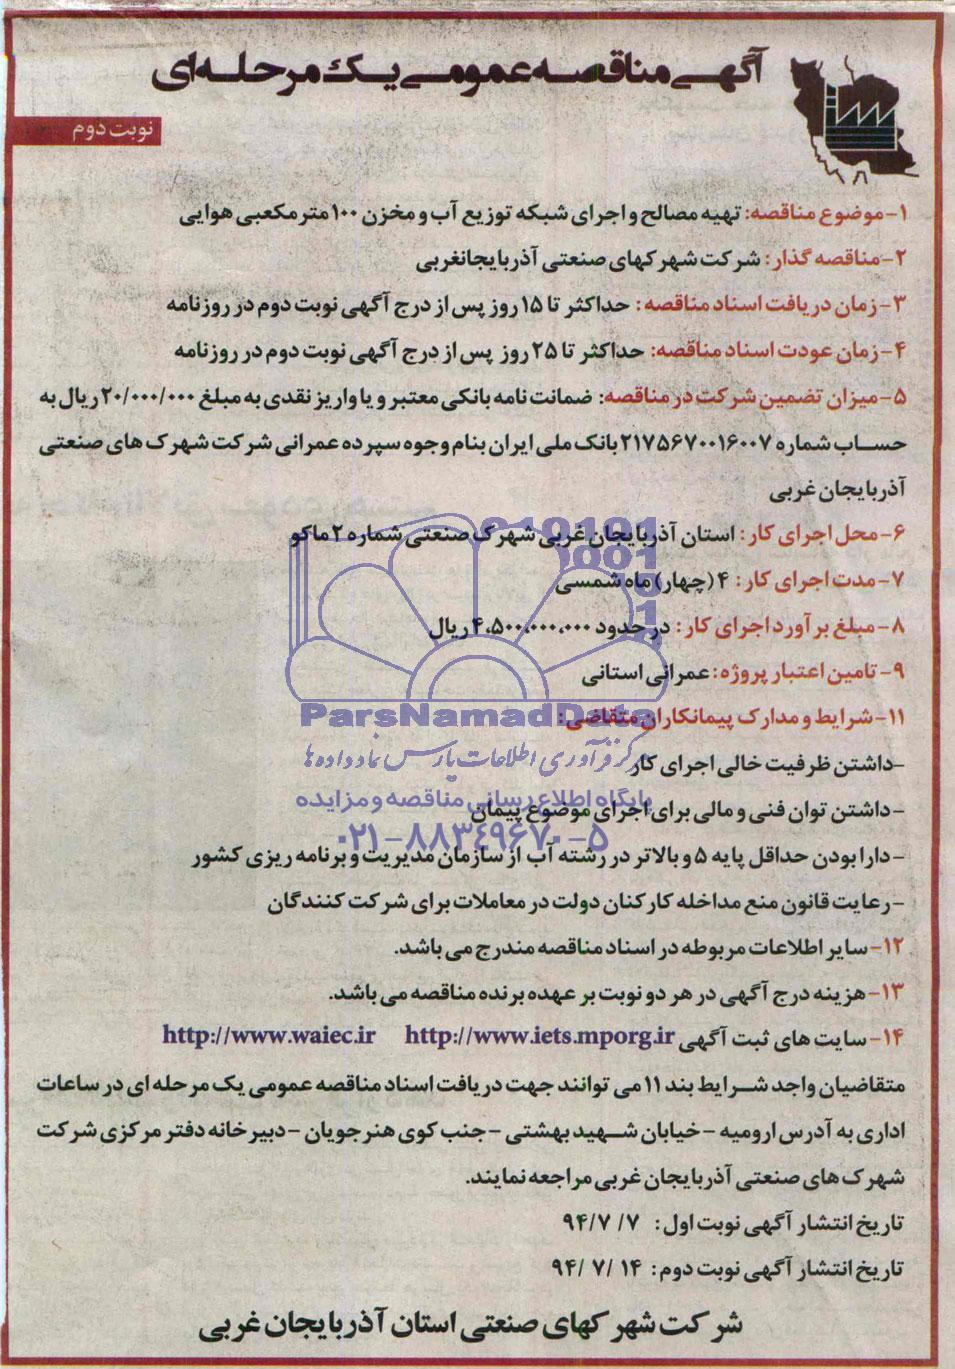 آگهی مناقصه عمومی یک مرحله‌ای
نوبت دوم
۱-موضوع مناقصه: تهیه مصالح و اجرای شبکه توزیع آب و مخزن ۱۰۰ مترمکعبی هوایی
۲-مناقصه گذار: شرکت شهرکهای صنعتی آذربایجانغربی
۳-زمان دریافت اسناد مناقصه: حداکثر تا ۱۵ روز پس از درج آگهی نوبت دوم در روزنامه
۴-زمان عودت اسناد مناقصه: حداکثر تا ۲۵ روز پس از درج آگهی نوبت دوم در روزنامه
۵-میزان تضمین شرکت در مناقصه: ضمانت نامه بانکی معتبر و یا واریز نقدی به مبلغ ۲۰/۰۰۰/۰۰۰ ریال به
حساب شماره ۲۱۷۵۶۷۰۰۱۶۰۰۷ بانک ملی ایران بنام وجوه سپرده عمرانی شرکت شهرک های صنعتی
آذربایجان غربی
۶-محل اجرای کار: استان آذربایجان غربی شهرک صنعتی شماره ۲ ماکو
۷-مدت اجرای کار: ۴ (چهار) ماه شمسی
۸-مبلغ برآورد اجرای کار: در حدود ۴،۵۰۰،۰۰۰،۰۰۰ ریال
۹-تامین اعتبار پروژه: عمرانی استانی
ParsNamadData
۱۱-شرایط و مدارک پیمانکاران متقاضی:
مرکز فرآوری اطلاعات پارس نماد داده ها
-داشتن ظرفیت خالی اجرای کار
پایگاه اطلاع رسانی مناقصه و مزایده
-داشتن توان فنی و مالی برای اجرای موضوع پیمان
۰۲۱-۸۸۳۴۹۶۷۰-۵
-دارا بودن حداقل پایه ۵ و بالاتر در رشته آب از سازمان مدیریت و برنامه ریزی کشور
-رعایت قانون منع مداخله کارکنان دولت در معاملات برای شرکت کنندگان
۱۲-سایر اطلاعات مربوطه در اسناد مناقصه مندرج می باشد.
۱۳-هزینه درج آگهی در هر دو نوبت بر عهده برنده مناقصه می باشد.
۱۴-سایت های ثبت آگهی http://www.iets.mporg.ir http://www.waiec.ir
متقاضیان واجد شرایط بند ۱۱ می توانند جهت دریافت اسناد مناقصه عمومی یک مرحله ای در ساعات
اداری به آدرس ارومیه -خیابان شهید بهشتی -جنب کوی هنرجویان -دبیرخانه دفتر مرکزی شرکت
شهرک های صنعتی آذربایجان غربی مراجعه نمایند.
تاریخ انتشار آگهی نوبت اول: ۹۴/۷/۷
تاریخ انتشار آگهی نوبت دوم: ۹۴/۷/۱۴
شرکت شهرکهای صنعتی استان آذربایجان غربی